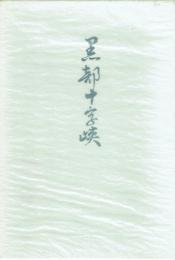 黒部十字峡